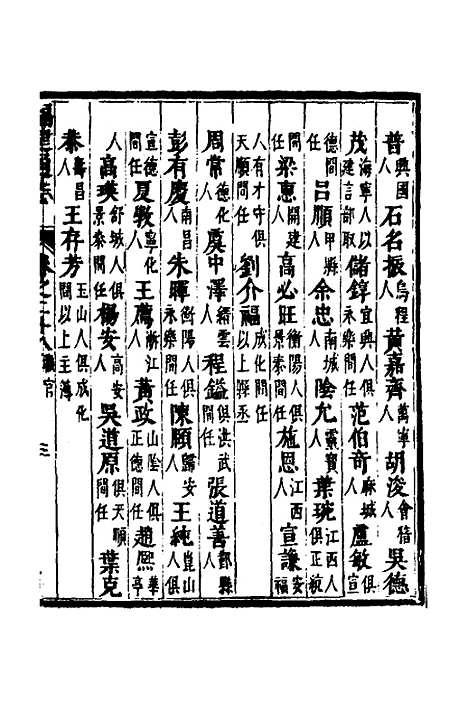 普興國人 石名振烏程人 黃嘉齊萬寧人 胡浚會稽人 吳德
茂海寧人以建言部取 儲錞宜興人俱永樂間任 范伯奇麻城人 盧敏俱宣
德間任 呂順甲縣人 余忠南城人 陰允靈寶人 葉琬江西人俱正統
間任 梁惠開建人 高必旺衡陽人俱景泰間任 施恩江西人 宣謙安福
人有才守俱天順間任 劉介福成化間任以上縣丞
周常德化人 虞中澤縉雲人 程鎰俱洪武間任 張道善鄞縣人
彭有慶南昌人 朱暉衡陽人俱永樂間任 陳順歸安人 王純崑山人俱
宣德間任 夏敦寧化人 王薦浙江人 黃政山陰人俱正德間任 趙熈華亭
人 高瑛舒城人俱景泰間任 楊安高安人 吳道原俱天順間任 葉克
恭壽昌人 王存芳玉山人俱成化間以上主薄
福建通志 卷之二十八 職官 三